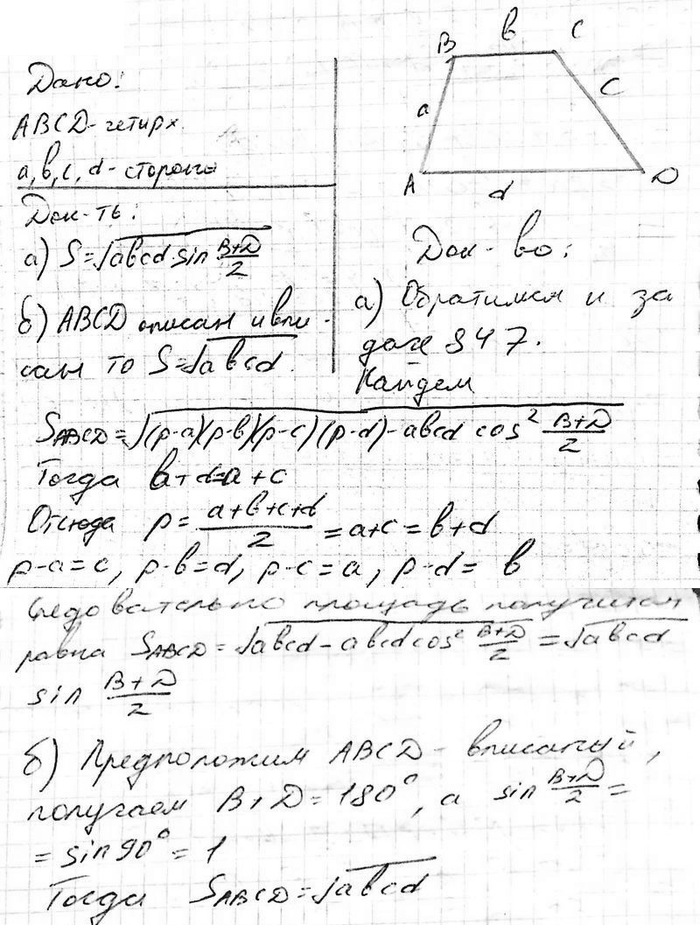 Дано:
ABCD - четирх.
a, b, c, d - стороны
Док-ть:
а) S=√abcd·sin (B+D)/2
б) ABCD описан и впи-
сан то S=√abcd.
B b C
a c
A d D
Док-во:
а) Обратимся к за
даче 847.
Найдем
S_ABCD=√(p-a)(p-b)(p-c)(p-d)-abcd cos² (B+D)/2
Тогда b+d=a+c
Отсюда p= (a+b+c+d)/2 =a+c=b+d
p-a=c, p-b=d, p-c=a, p-d= b
следовательно площадь получится
равна S_ABCD=√abcd-abcd cos² (B+D)/2 =√abcd
sin (B+D)/2
б) Предположим ABCD- вписаный,
получаем B+D=180°, а sin (B+D)/2 =
=sin90°=1
Тогда S_ABCD=√abcd